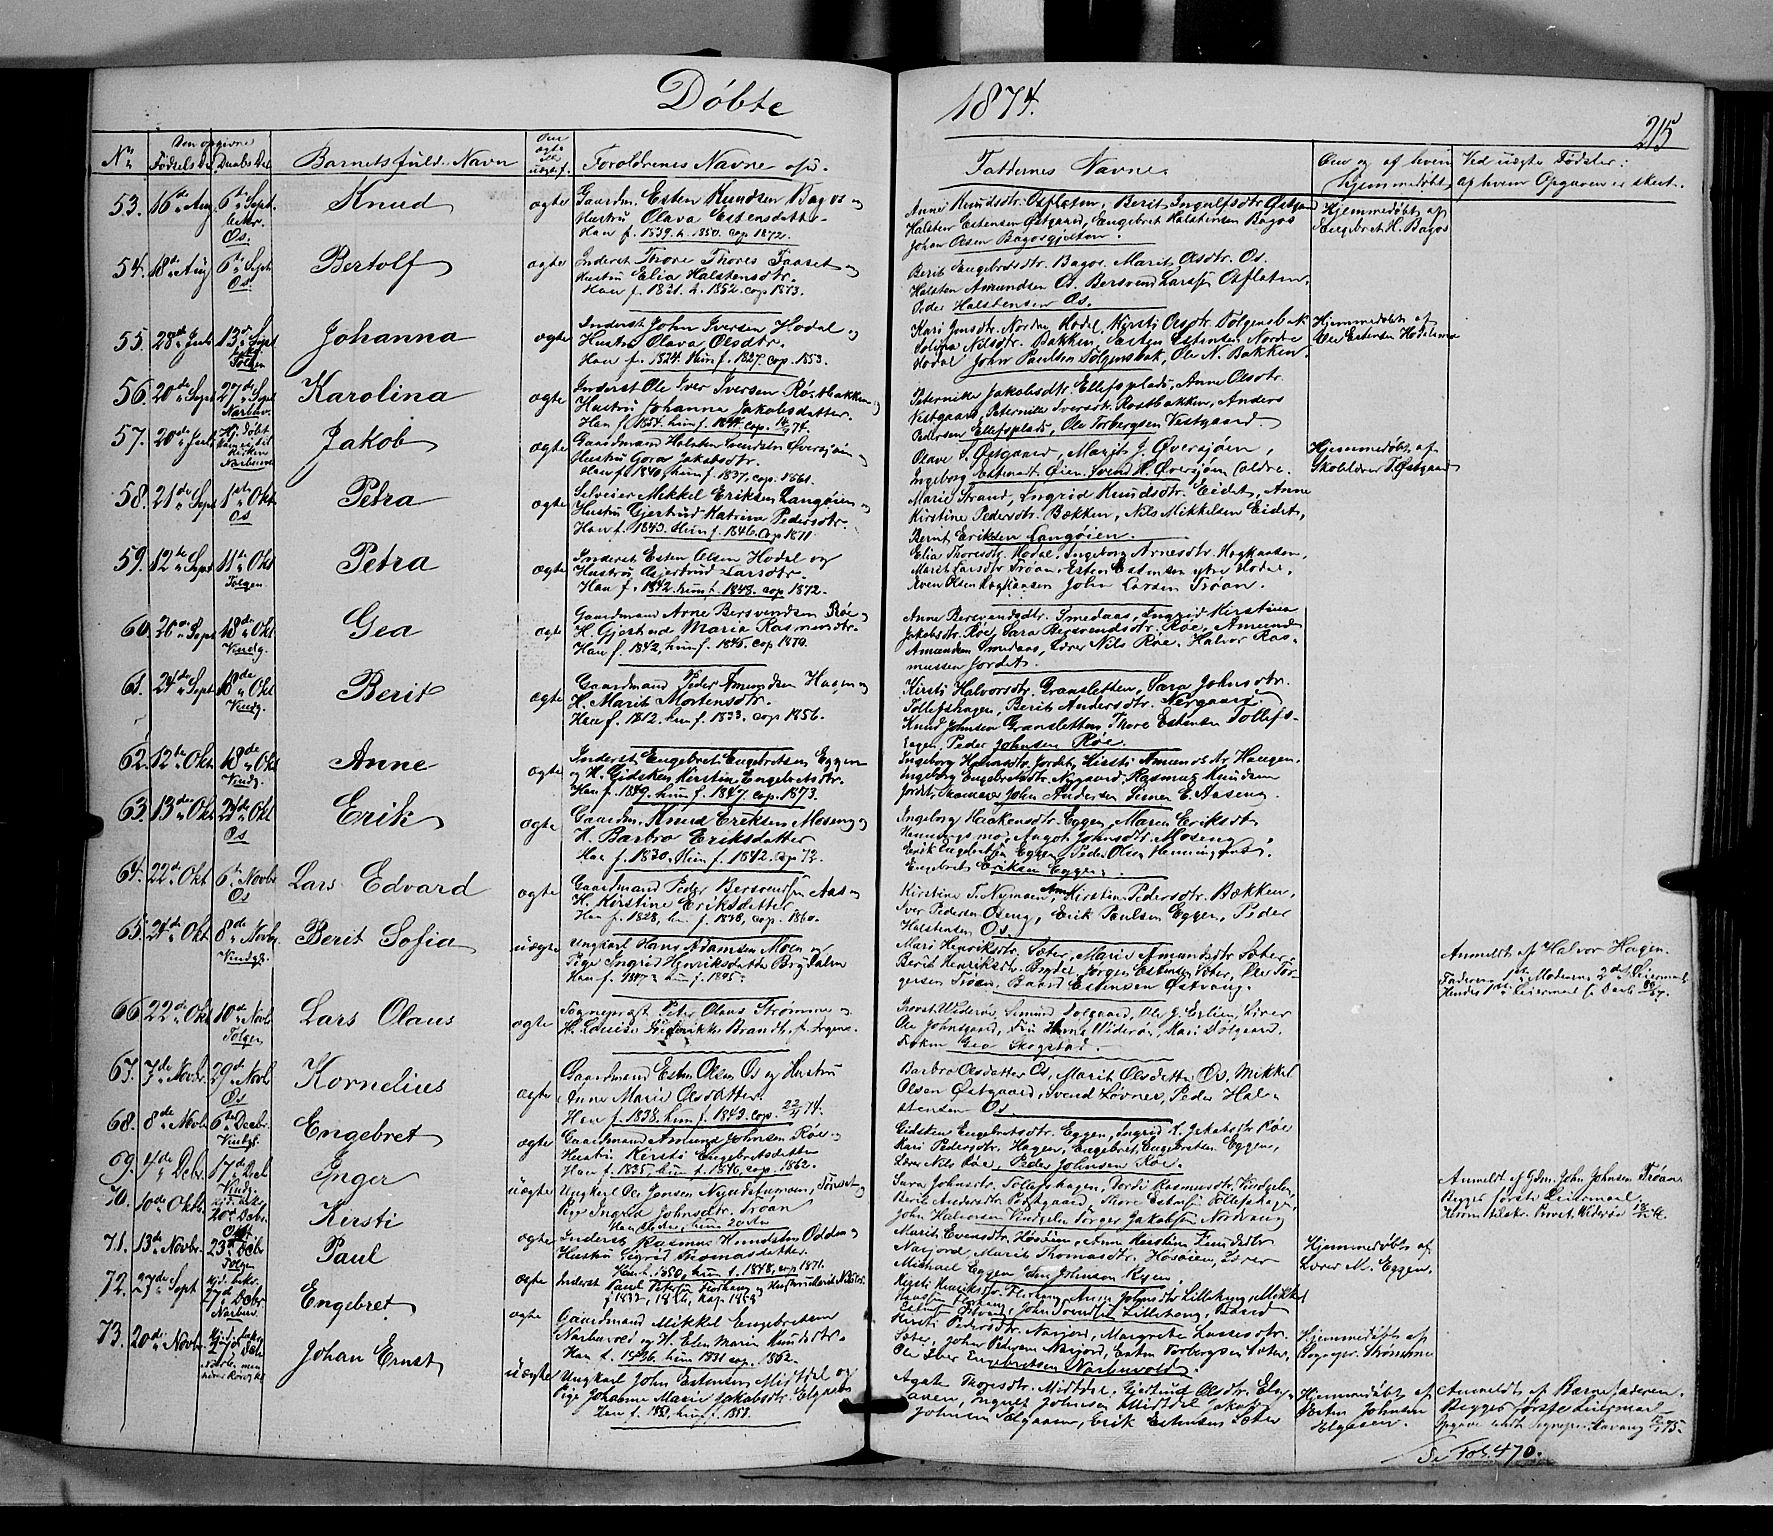 Døbte
1874.
215
No
Den opgivne
Fødsels D.
Daabs D.
Barnets fulde Navn
Om ægte ell. uægte f.
Forældrenes Navne
Faddernes Navne
Om og af hvem hjemmedøbt
Ved uægte Fødsler: af hvem Opgaven er skeet.
53. 16de Aug 6te Sept. Os. Knud ægte Gaardm. Esten Knudsen Bagos og
Hustru Olava Estensdatter
Han f. 1839. h. 1850. cop. 1872.
Anne Knudsdtr. Osfløten, Berit Ingulfsdtr Østgaard
Halsten Estensen Østgaard, Engebret Halstensen Bagos
Johan Olsen Bagosgjelten.
Hjemmedøbt af
Engebret H. Bagos
54. 18de Aug 6te Sept. Os. Bertolf ægte Inderst Thore Thores. Faaset og
Hustru Elia Halstensdtr.
Han f. 1831. h. 1852. cop 1873.
Berit Engebretsdtr. Bagos, Marit Olsdtr. Os.
Halsten Amundsen Os. Bersvend Larssen Osfløten,
Peder Halstensen Os.
55. 28de Juli 13de Sept Tolgen Johanna ægte Inderst John Iversen Hodal og
Hustru Olava Olsdtr.
Han f. 1824. hun f. 1827. cop. 1853.
Kari Jonsdtr. Nordre Hodal, Kirsti Olsdtr. Tolgensbak
Nilsdtr. Bakken, Esten Estensen Nordre
Hodal John Paulsen Tolgensbak, Ole N. Bakken.
Hjemmedøbt af
Ole Estensen Hodalsmo
56. 20de Sept 27de Sept Narbuv. Karolina ægte Inderst Ole Iver Iversen Røstbakken og
Hustru Johanna Jakobsdatter.
Peternille Jakobsdtr. Ellefsplads, Anne Olsdtr.
Vestgaard, Peternille Iversdtr. Røstbakken, Anders
Pedersen Ellefsplads, Ole Torbergsen Vestgaard.
57. 20de Juli Hj.døbt Jakob ægte Gaardmand Halsten Svendsen Øversjøen og
Hustru Gora Jakobsdtr.
Han f. 1840, hun f. 1837, cop. 1861.
Olave T. Østgaard, Marit J. Øversjøen,
Ingeborg Estensdt. Øien, Svend H. Øversjøen (ældre.
Hjemmedøbt af
Skoleholder T. Østgaard
58. 21de Sept 1ste Okt Os Petra ægte Selveier Mikkel Eriksen Langøien og
Hustru Gjertrud Katrina Pedersdtr.
Han f. 1843. Hun f. 1846. Cop 1871.
Marie Strand, Ingrid Knudsdtr. Eidet, Anne
Kirstine Pedersdtr. Bækken, Nils Mikkelsen Eidet,
Bernt Eriksen Langøien.
59. 12te Sept 11te Okt Tolgen Petra ægte Inderst Esten Olsen Hodal og
Hustru Gjertrud Larsdtr.
Han f. 1842. hun f. 1848. cop 1872.
Elia Thoresdtr. Hodal, Ingeborg Arnesdtr. Hogkaasen,
Marit Larsdtr. Troan, Esten Estensen ytre Hodal,
Even Olsen Hogkaasen John Larsen Troan.
60. 20de Sept 18de Okt Vindg. Gea ægte Gaardmand Arne Bersvendsen Røe og
H. Gjertrude Maria Rasmusdtr.
Han f. 1842, hun f. 1845. cop 1870.
Anne Bersvendsdtr. Smedaas, Ingrid Kirstina
Jakobsdtr. Røe, Sara Bersvendsdtr. Røe, Amund
Amundsen Smedaas, Lærer Nils Røe, Halvor Ras-
mussen Jordet.
61. 24de Sept 18de Okt Vindg. Berit ægte Gaardmand Peder Amundsen Hagen og
H. Marit Mortensdtr.
Han f. 1812, hun f. 1833. cop. 1856.
Kirsti Halvorsdtr. Gransletten, Sara Johnsdtr.
Tollefshagen, Berit Andersdtr. Nergaard,
Knud Johnsen Gransletten, Thore Estensen Tollefs-
hagen, Peder Johnsen Røe.
62. 12te Okt. 18de Okt Vindg. Anne ægte Inderst Engebret Engebretsen Eggen
og H. Gidsken Kirstine Engebretsdtr.
Han f. 1849. hun f. 1847. cop. 1873.
Ingeborg Hansdtr. Jordet, Kirsti Amundsdtr. Haugen,
Ingeborg Engebretsdtr. Nygaard, Rasmus Knudsen
Jordet, Skomager John Andersen Simen E. Aaseng.
63. 13de Okt 22de Okt Os Erik ægte Gaardm. Knud Eriksen Moseng og
H. Barbro Eriksdatter
Han f. 1830. Hun f. 1842. Cop 72.
Ingeborg Haakensdtr. Eggen, Maren Eriksdtr.
Henningsmo, Angot Johnsdtr. Moseng,
Erik Engebretsen Eggen, Peder Olsen Henningsmo,
Engebret Eriksen Eggen.
64. 22de Okt 6te Novbr Os Lars Edvard ægte Gaardmand Peder Bersvendsen Aas og
H. Kirstine Eriksdatter
Han f. 1828, hun f. 1838, cop. 1860.
Kirstine T. Nymoen, Ann Kirstine Pedersdtr. Bækken,
Iver Pedersen Oseng, Erik Paulsen Eggen, Peder
Halstensen Os.
65. 24de Okt 8de Novbr. Vindg. Berit Sofia uægte Ungkarl Hans Adamsen Moen og
Pige Ingrid Henriksdatter Brydalen
Han f. 1847 hun f. 1845.
Mari Henriksdtr. Sæter, Marie Amundsdtr Sæter,
Berit Henriksdtr. Brydal, Jørgen Estensen Sæter, Ole Tor-
gersen Troan, Baard Estensen Østvang.
Anmeldt af Halvor Hagen.
Faderens 1ste Moderens 2det Leiermaal
66. 22de Okt 10de Novb. Tolgen Lars Olaus ægte Sognepræst Peter Olaus Strømme og
H. Louise Fredrikke Brandt, f. Segene.
Provst Widerøe, Simund Dølgaard, Ole J. Erlien, Lærer
Ole Johnsgaard, Fru Hanna Widerøe, Mari Dølgaard,
Frøken Gea Skogstad.
67. 7de Novbr. 29de Novb Os Kornelius ægte Gaardmand Esten Olsen Os og Hustru
Anne Marie Olsdatter.
Han f. 1838. hun f. 1843. cop. 22/4 74.
Barbro Olsdatter Os, Marit Olsdatter Os, Mikkel
Olsen Østgaard, Svend Løvnes, Peder Hal-
stensen Os.
68. 8de Novb 6te Decbr. Vindg. Engebret ægte Gaardmand Amund Johnsen Røe og
Hustru Kirsti Engebretsdatter
Han f. 1835, hun f. 1840, cop. 1862.
Gidsken Engebretsdtr. Eggen, Ingrid K. Jakobsdtr Røe
Kari Pedersdtr. Hagen, Engebret Engebretsen Eggen,
Lærer Nils Røe, Peder Johnsen Røe.
69. 4de Decbr. 17de Decb Vindg. Inger uægte Ungkarl Ole Jonsen Nyrudstumoen, Tønset og
Pige Ingrid Johnsdtr. Troan
Sara Johnsdtr. Tollefshagen, Dordi Rasmusdtr. Vindgelen,
Berit Andersdtr. Østgaard, Thore Estensen Tollefshagen,
John Halvorsen Vindgelen Torger Jakobsen Nordvang
Anmeldt af Gdm. John Johnsen Troan.
Begges første Leiermaal.
70. 10de Oktb. 20de Decbr. Kirsti ægte Inderst Rasmus Knudsen Odden og
Hustru Sigrid Thomasdatter.
Han f. 1850, hun f. 1848, cop 1871.
Marit Evensdtr. Hosøien, Anne Kirstine Knudsdtr
Narjord, Marit Thomasdtr. Hosøien, Lærer
Michael Eggen John Johnsen Ryen.
Hjemmedøbt af
Lærer M. Eggen.
71. 13de Novbr. 23de Decbr Tolgen Paul ægte Inderst Paul
72. 27de Sept Engebret ægte Gaardmand Mikkel Engebretsen
Narbuvold og H. Elen Marie Knudsdtr.
Han f. 1836, hun 1831 cop. 1862.
Kirsti Pedersdtr. Narjord, Margrete Lassesdtr.
Sæter, John Pedersen Narjord, Esten Torbergsen Sæter,
Ole Iver Engebretsen Narbuvold.
Hjemmedøbt af
Sognepr. Strømme
73. 20de Novbr. Johan Ernst uægte Ungkarl John Estensen Midtdal og
Pige Johanne Marie Jakobsdtr. Elgaaen
Agate Thoresdtr. Midtdal, Gjertrud Olsdtr. Elg-
aaen, Ingvart Johnsen Midtdal Jakob
Johnsen Elgaaen, Erik Estensen Sæter
Hjemmedøbt af
Esten Johnsen
Elgaaen.
Anmeldt af Barnefaderen.
Begges første Leiermaal
Se Fol. 470.